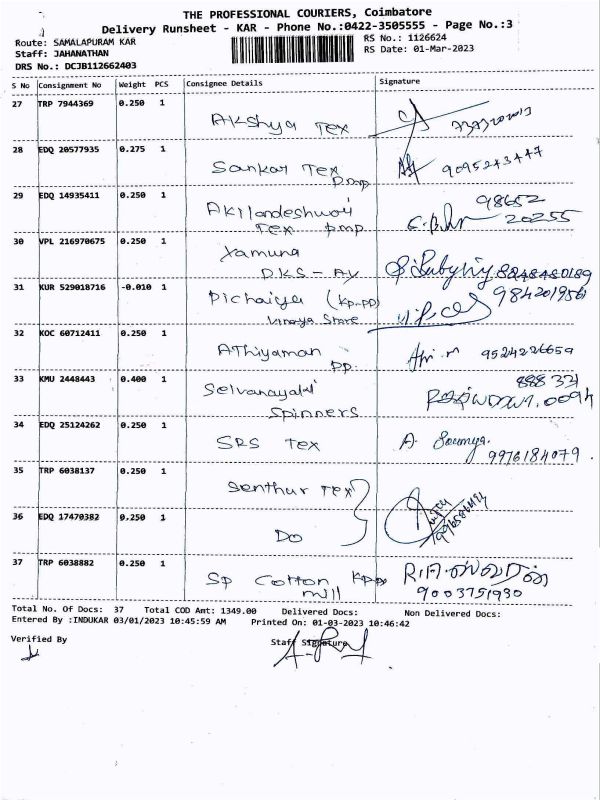 THE PROFESSIONAL COURIERS, Coimbatore
Delivery Runsheet - KAR - Phone No.:0422-3505555 - Page No.:3
Route: SAMALAPURAM KAR
RS No.: 1126624
Staff: JAHANATHAN
RS Date: 01-Mar-2023
DRS No.: DCJB112662403
S No Consignment No Weight PCS Consignee Details Signature
27 TRP 7944369 0.250 1 Akshya Tex
28 EDQ 20577935 0.275 1 Sankar Tex pmp 9095243447
29 EDQ 14935411 0.250 1 Akilandeshwari Tex pmp 98652 20255
30 VPL 216970675 0.250 1 Yamuna DKS - AY 8248480189
31 KUR 529018716 -0.010 1 Pichaiya (KP-PD) Vinaya Store 9842019561
32 KOC 60712411 0.250 1 Athiyaman PP. 9524226659
33 KMU 2448443 0.400 1 Selvanayaki Spinners
34 EDQ 25124262 0.250 1 SRS Tex A. Soumya. 9976184079
35 TRP 6038137 0.250 1 Senthur Tex
36 EDQ 17470382 0.250 1 Do
37 TRP 6038882 0.250 1 Sp Cotton mill 9003751930
Total No. Of Docs: 37 Total COD Amt: 1349.00 Delivered Docs: Non Delivered Docs:
Entered By :INDUKAR 03/01/2023 10:45:59 AM Printed On: 01-03-2023 10:46:42
Verified By Staff Signature